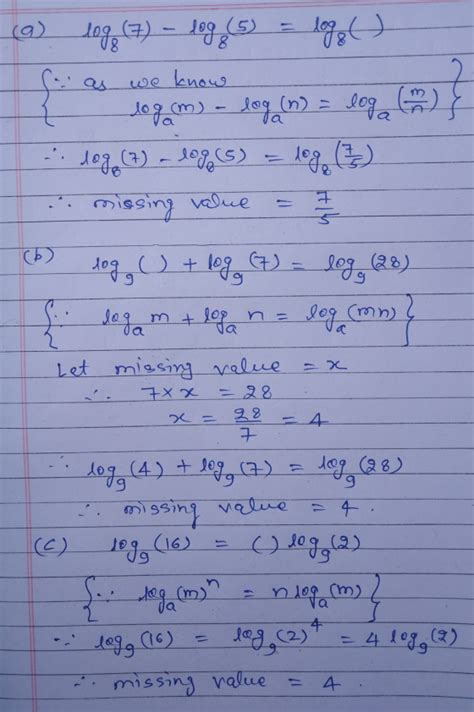 (a) log₈(7) − log₈(5) = log₈( )
{∵ as we know
logₐ(m) − logₐ(n) = logₐ(m/n)}
∴ log₈(7) − log₈(5) = log₈(7/5)
∴ missing value = 7/5
(b) log₉( ) + log₉(7) = log₉(28)
{∵ logₐ m + logₐ n = logₐ(mn)}
Let missing value = x
∴ 7 × x = 28
x = 28/7 = 4
∴ log₉(4) + log₉(7) = log₉(28)
∴ missing value = 4.
(c) log₉(16) = ( ) log₉(2)
{∵ logₐ(m)ⁿ = n logₐ(m)}
∵ log₉(16) = log₉(2)⁴ = 4 log₉(2)
∴ missing value = 4.